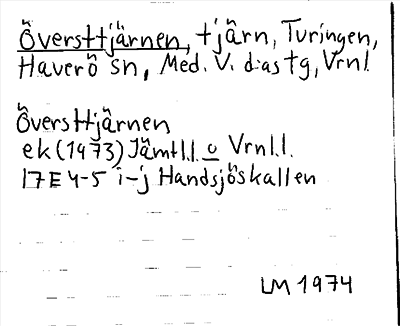 Översttjärnen, tjärn, Turingen,
Haverö sn, Med. V. dastg, Vrnl.
Översttjärnen
ek (1973) Jämtl.l. o Vrnl.l.
17E 4-5 i-j Handsjöskallen
LM 1974